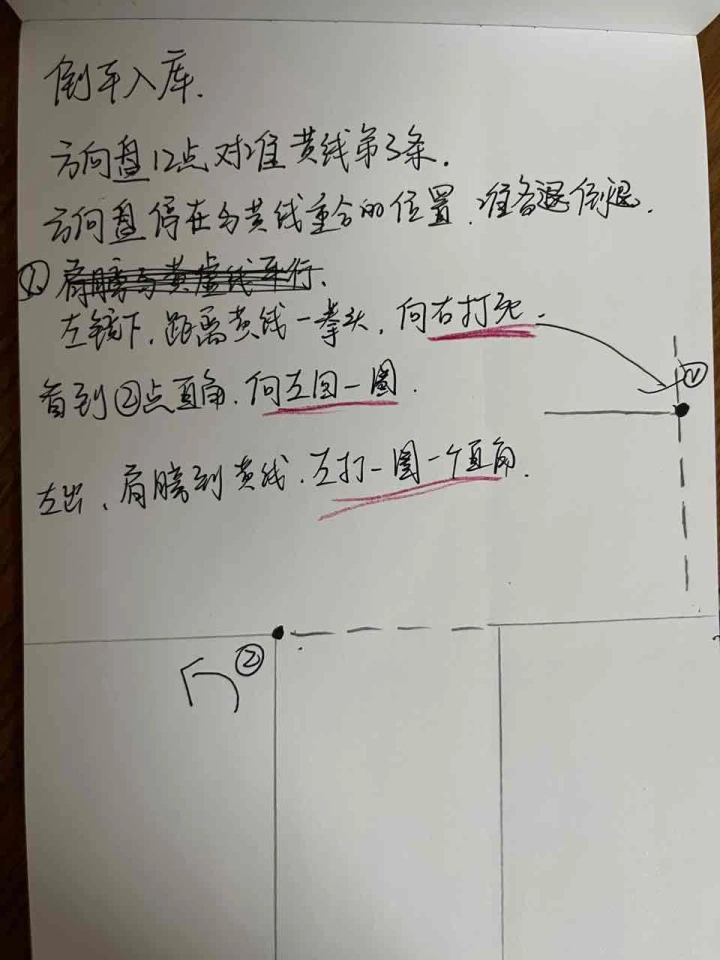 倒车入库.
方向盘12点对准黄线第3条.
方向盘停在与黄线重合的位置.准备退倒退.
① 肩膀与黄虚线平行.
左镜下,距离黄线一拳头,向右打死.
看到②点直角.向左回一圈.
左出,肩膀到黄线.左打一圈一个直角.
①
②